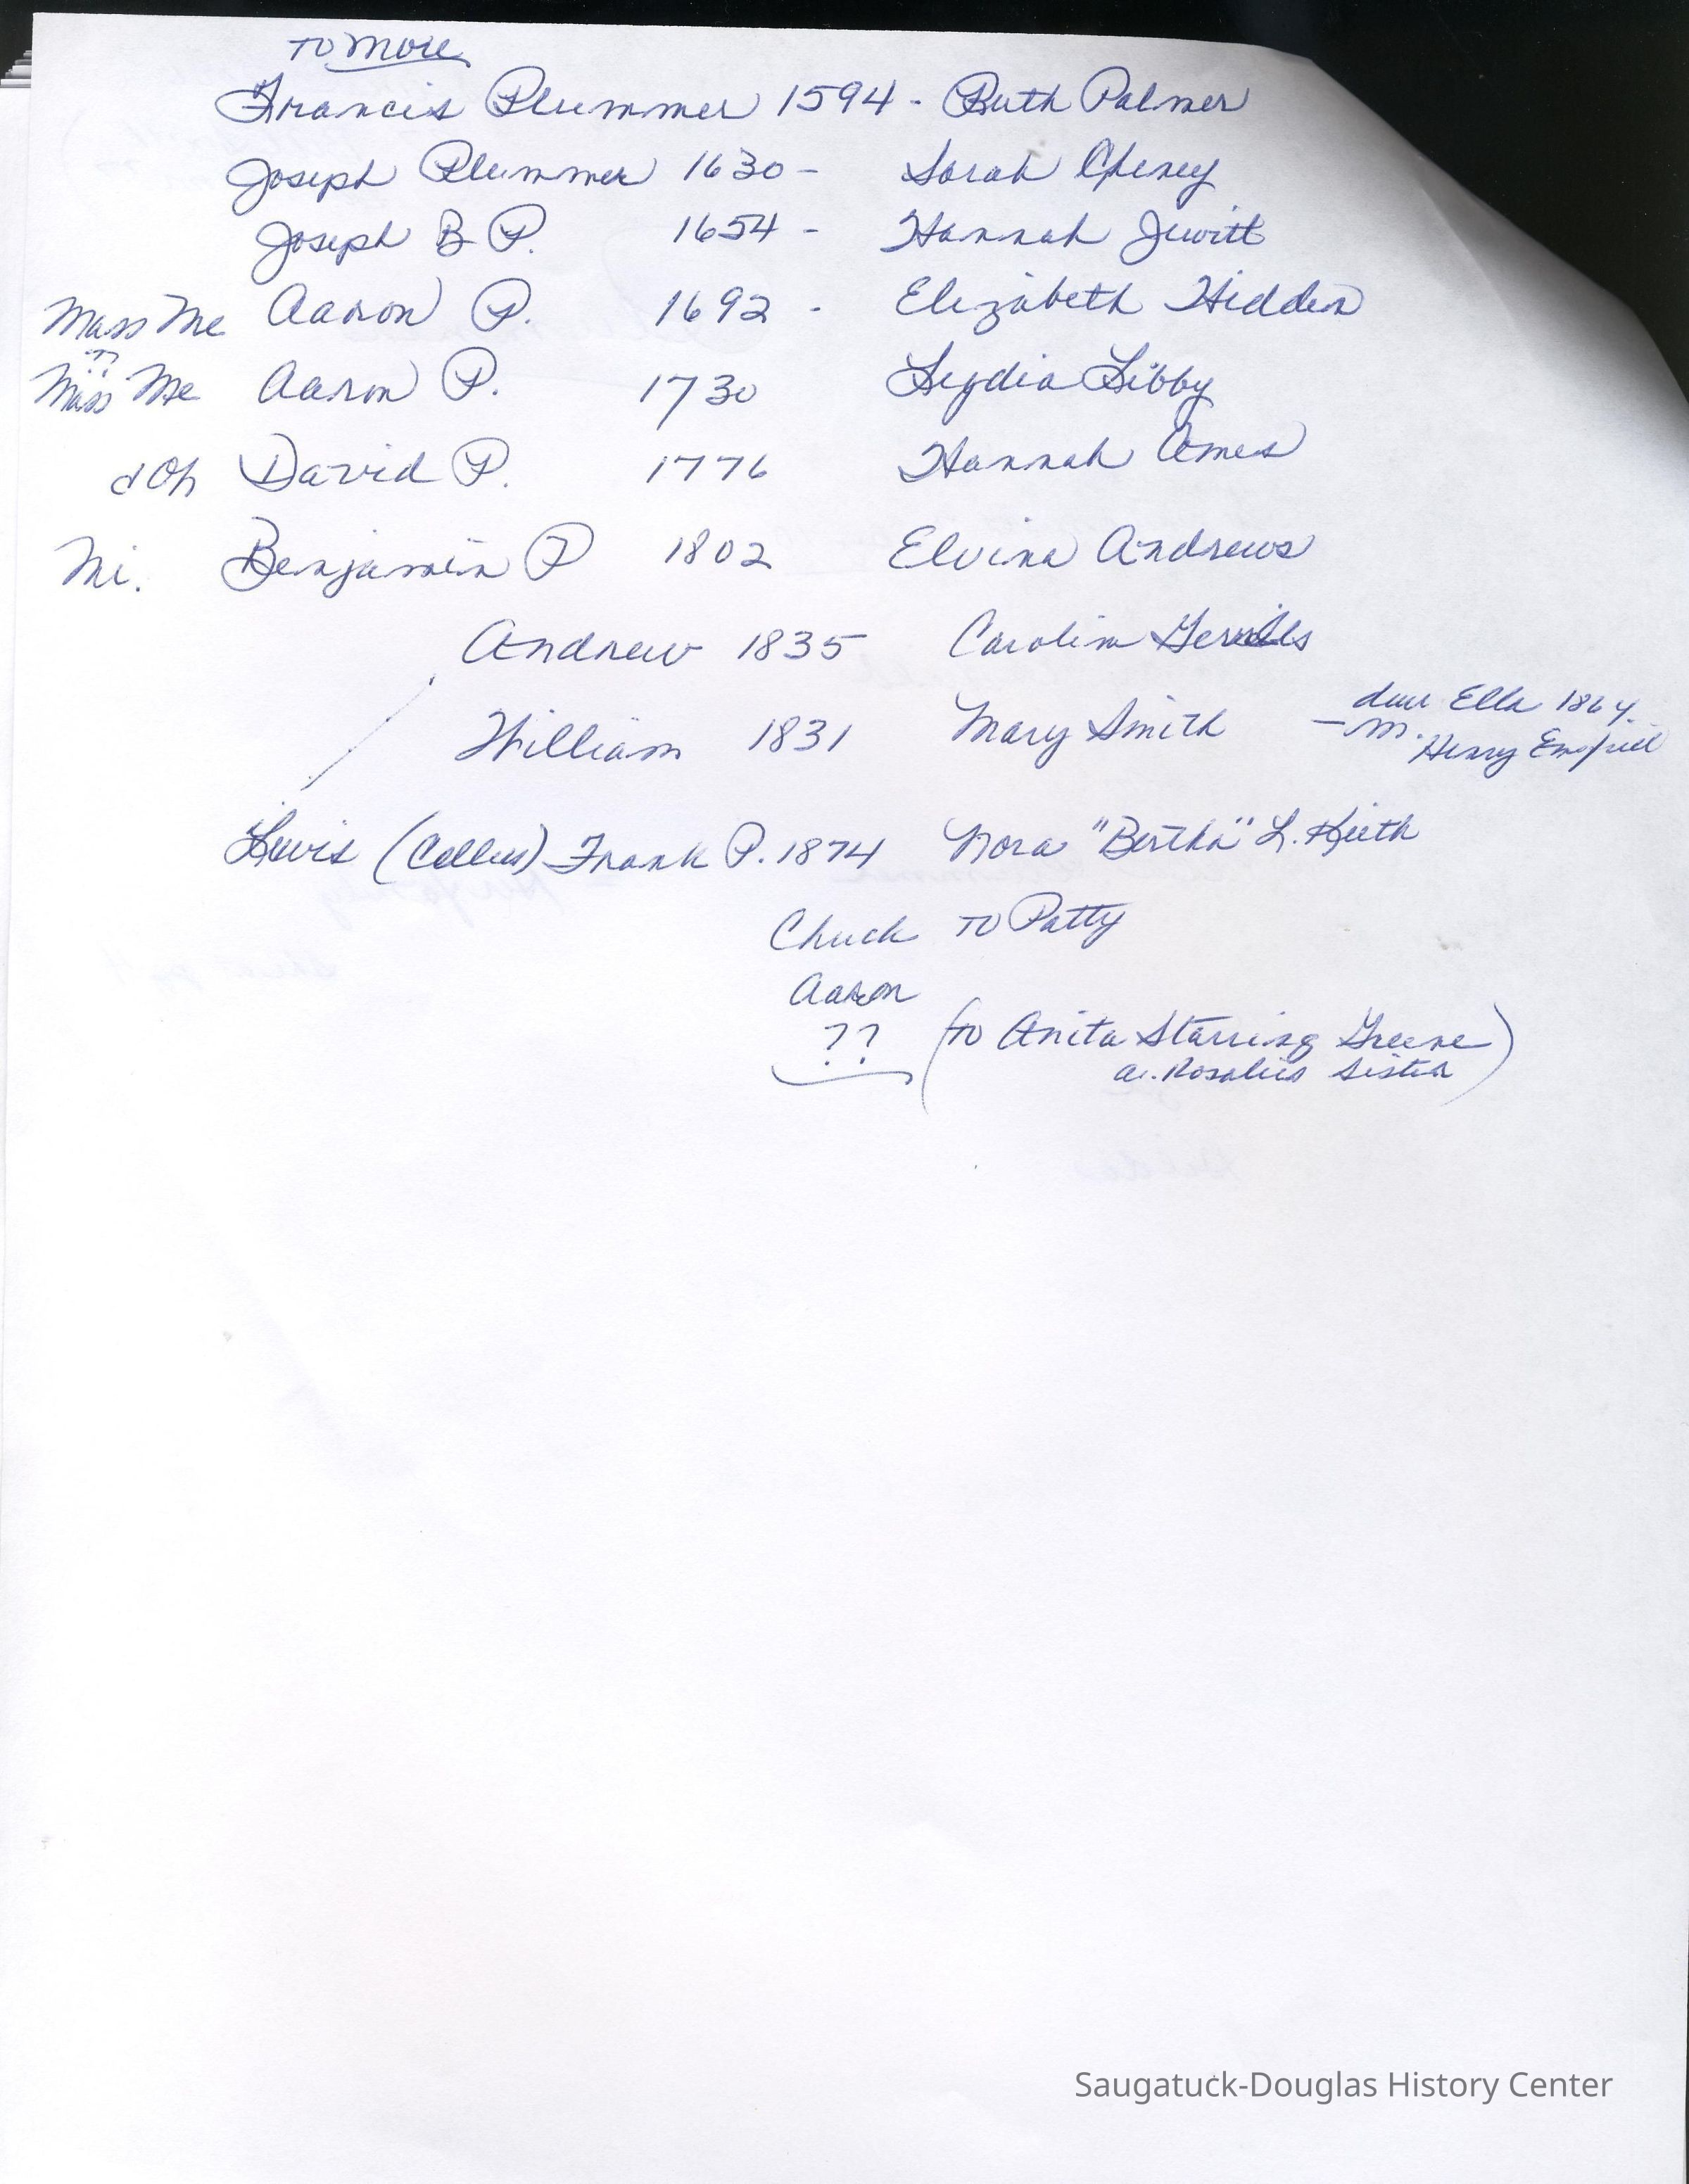 To More
Francis Plummer 1594 - Ruth Palmer
Joseph Plummer 1630 - Sarah Cheney
Joseph B P. 1654 - Hannah Jewitt
Mass Me Aaron P. 1692 - Elizabeth Hidden
Mass Me Aaron P. 1730 Lydia Libby
d Oh David P. 1776 Hannah Ames
Mi. Benjamin P 1802 Elvina Andrews
Andrew 1835 Carolin
William 1831 Mary Smith - dau Ella 1864
m. Henry
Lewis (Celleus) Frank P. 1874 Nora "Bertha" L. Keith
Chuck to Patty
Aaron
?? (to Anita Starring Greene
a. Rosalies sister)
Saugatuck-Douglas History Center